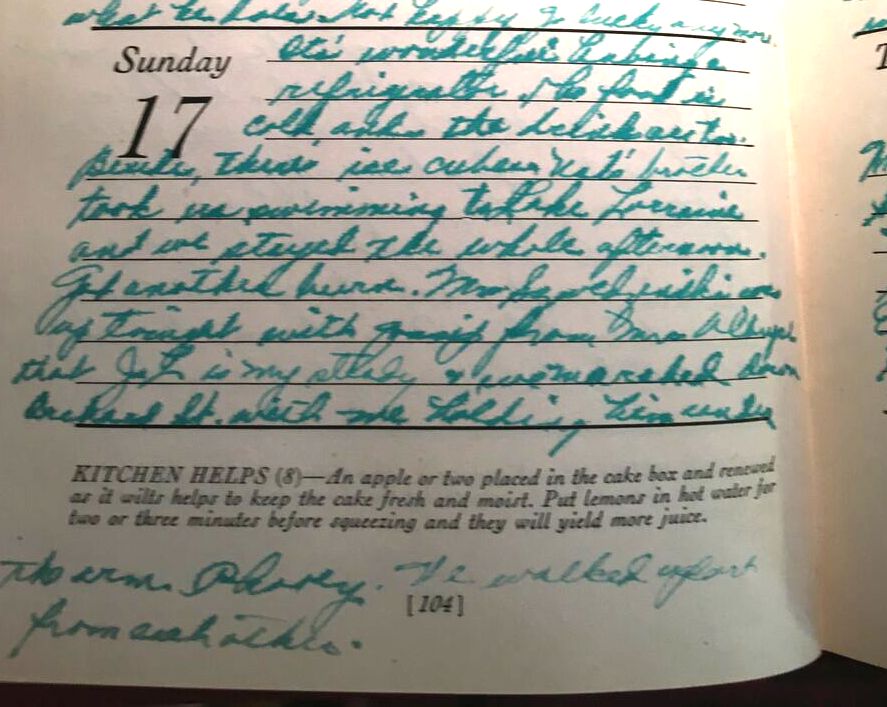 what he does. Not happy go lucky anymore.
Sunday
17
It's wonderful having a
refrigerator. The food is
cold and the
Besides, there's ice cubes. Nat's brother
took us swimming to Lake Lorraine
and we stayed the whole afternoon.
Got another burn. Mrs. was
up tonight with gossip from Mrs.
that J.L. is my steady & we marched down
Orchard St. with me holding him under
KITCHEN HELPS (8)—An apple or two placed in the cake box and renewed
as it wilts helps to keep the cake fresh and moist. Put lemons in hot water for
two or three minutes before squeezing and they will yield more juice.
the arm. Phooey. We walked apart
[104]
from each other.